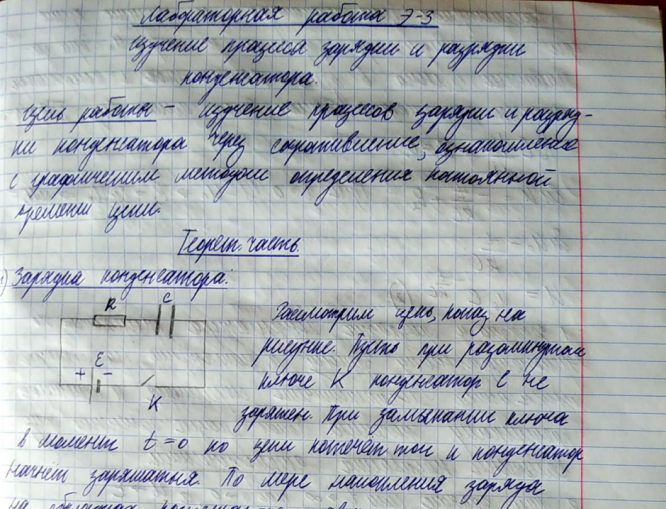 Лабораторная работа Э-3
Изучение процесса зарядки и разрядки
конденсатора.
Цель работы – изучение процессов зарядки и разряд-
ки конденсатора через сопротивление, ознакомление
с графическим методом определения постоянной
времени цепи.
Теорет. часть.
1) Зарядка конденсатора:
R C
Рассмотрим цепь, показ. на
рисунке. Пусть при разомкнутом
+ ε −
ключе К конденсатор С не
K
заряжен. При замыкании ключа
в момент t=0 по цепи потечет ток и конденсатор
начнет заряжаться. По мере накопления заряда
на обкладках